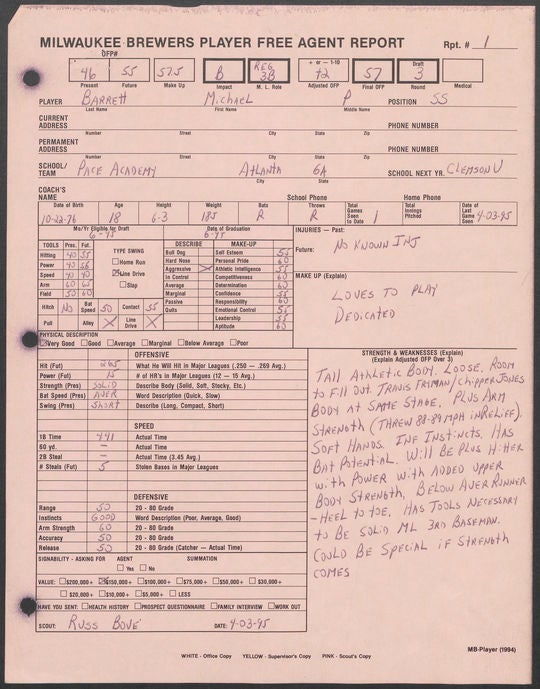 MILWAUKEE BREWERS PLAYER FREE AGENT REPORT Rpt. # 1
OFP# + or – 1-10 Draft
46 55 57.5 B REG 3B +2 57 3
Present Future Make Up Impact M. L. Role Adjusted OFP Final OFP Round Medical
PLAYER BARRETT MICHAEL P POSITION SS
Last Name First Name Middle Name
CURRENT ADDRESS PHONE NUMBER
Number Street City State Zip
PERMANENT ADDRESS PHONE NUMBER
Number Street City State Zip
SCHOOL/TEAM PACE ACADEMY ATLANTA GA SCHOOL NEXT YR. CLEMSON U
City State
COACH'S NAME School Phone Home Phone
Date of Birth Age Height Weight Bats Throws Total Games Seen to Date Total Innings Pitched Date of Last Game Seen
10-22-76 18 6-3 185 R R 1 4-03-95
Mo/Yr Eligible for Draft Date of Graduation
6-95 6-95
INJURIES — Past:
Future: NO KNOWN INJ
TOOLS Pres. Fut. TYPE SWING
Hitting 40 55 Home Run
Power 40 56 Line Drive
Speed 40 40 Slap
Arm 60 60
Field 50 60
Hitch NO Bat Speed 50 Contact 55
Pull Alley X Line Drive X
DESCRIBE MAKE-UP
Bull Dog Self Esteem 55
Hard Nose Personal Pride 60
Aggressive X Athletic Intelligence 55
In Control Competitiveness 60
Average Determination 60
Marginal Confidence 55
Passive Responsibility 60
Quits Emotional Control 55
Leadership 55
Aptitude 60
MAKE UP (Explain)
LOVES TO PLAY
DEDICATED
PHYSICAL DESCRIPTION
Very Good Good Average Marginal Below Average Poor
OFFENSIVE
Hit (Fut) 265 What He Will Hit in Major Leagues (.250 — .269 Avg.)
Power (Fut) 15 # of HR's in Major Leagues (12 — 15 Avg.)
Strength (Pres) SOLID Describe Body (Solid, Soft, Stocky, Etc.)
Bat Speed (Pres) AVER Word Description (Quick, Slow)
Swing (Pres) SHORT Describe (Long, Compact, Short)
SPEED
1B Time 4.41 Actual Time
60 yd. — Actual Time
2B Steal — Actual Time (3.45 Avg.)
# Steals (Fut) 5 Stolen Bases in Major Leagues
DEFENSIVE
Range 50 20 - 80 Grade
Instincts GOOD Word Description (Poor, Average, Good)
Arm Strength 60 20 - 80 Grade
Accuracy 50 20 - 80 Grade
Release 50 20 - 80 Grade (Catcher — Actual Time)
STRENGTH & WEAKNESSES (Explain)
(Explain Adjusted OFP Over 3)
TALL ATHLETIC BODY. LOOSE. ROOM
TO FILL OUT. TRAVIS FRYMAN/CHIPPER JONES
BODY AT SAME STAGE. PLUS ARM
STRENGTH (THREW 88-89 MPH IN RELIEF).
SOFT HANDS. INF INSTINCTS. HAS
BAT POTENTIAL. WILL BE PLUS HITTER
WITH POWER WITH ADDED UPPER
BODY STRENGTH, BELOW AVER RUNNER
- HEEL TO TOE. HAS TOOLS NECESSARY
TO BE SOLID ML 3RD BASEMAN.
COULD BE SPECIAL IF STRENGTH
COMES
SIGNABILITY - ASKING FOR AGENT SUMMATION
Yes No
VALUE: $200,000+ $150,000+ $100,000+ $75,000+ $50,000+ $30,000+
$20,000+ $10,000+ $5,000+ LESS
HAVE YOU SENT: HEALTH HISTORY PROSPECT QUESTIONNAIRE FAMILY INTERVIEW WORK OUT
SCOUT: RUSS BOVE' DATE: 4-03-95
WHITE - Office Copy YELLOW - Supervisor's Copy PINK - Scout's Copy
MB-Player (1994)